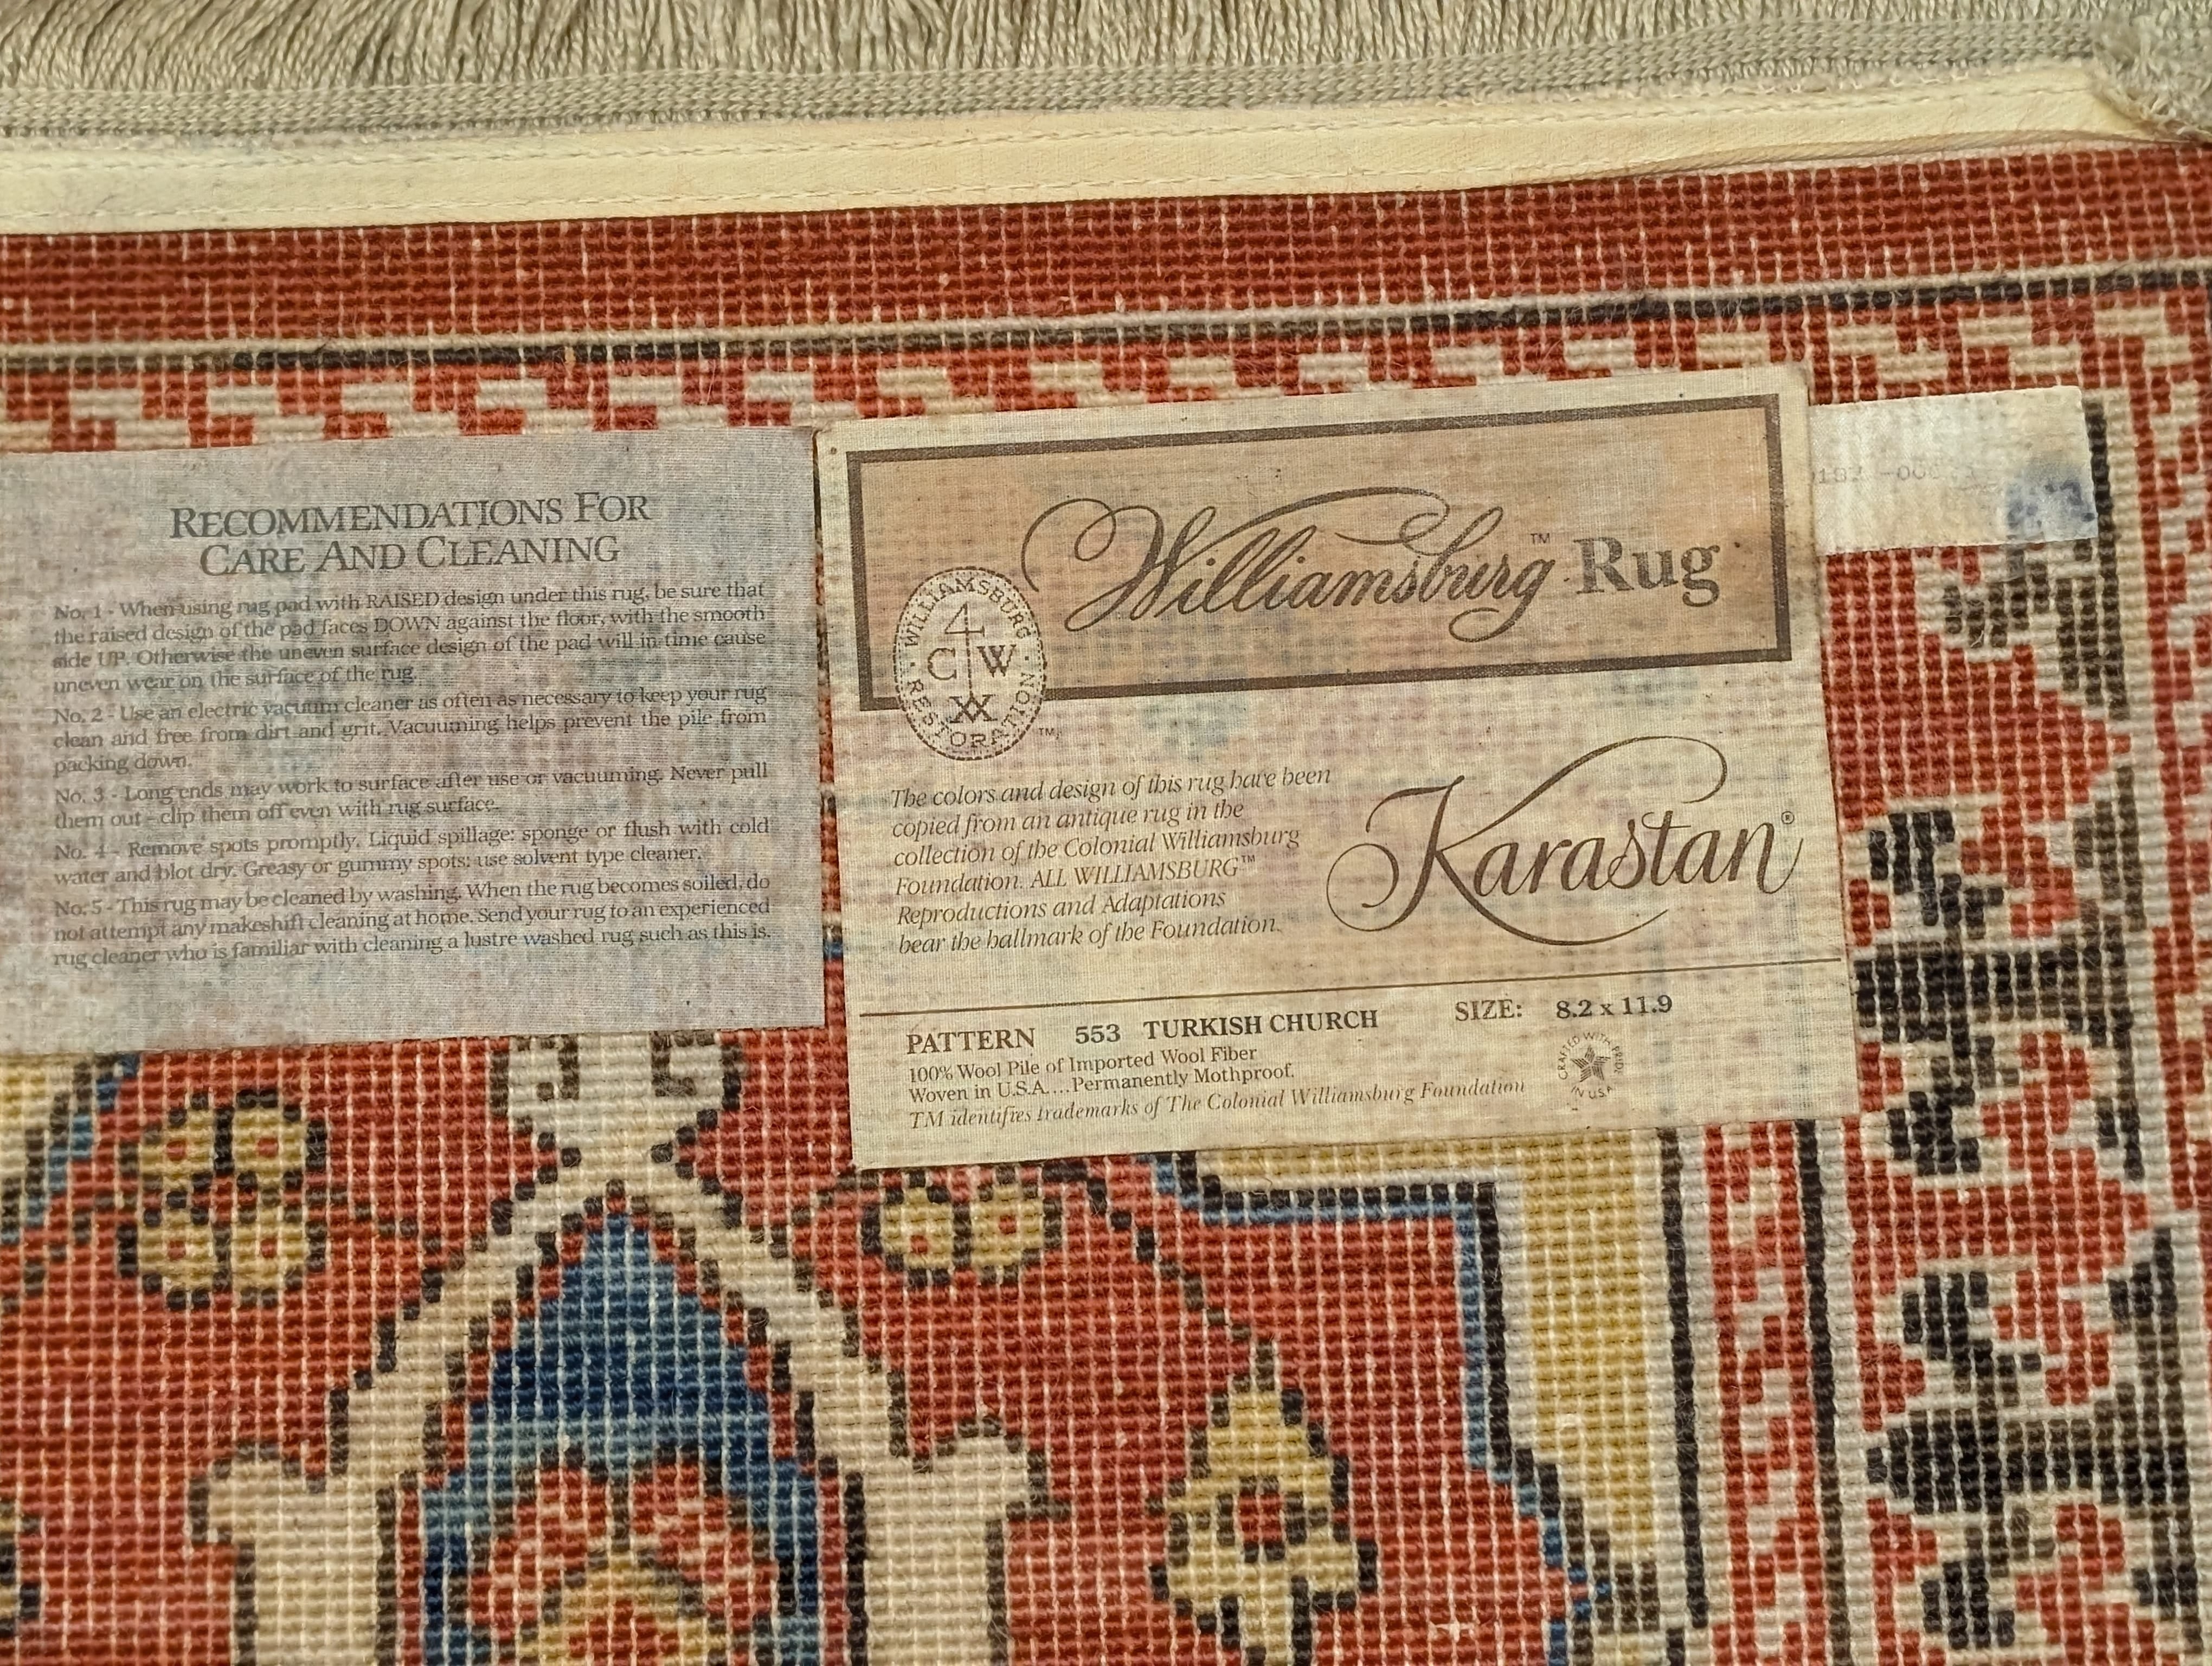 RECOMMENDATIONS FOR
CARE AND CLEANING
No. 1 - When using rug pad with RAISED design under this rug, be sure that
the raised design of the pad faces DOWN against the floor, with the smooth
side UP. Otherwise the uneven surface design of the pad will in time cause
uneven wear on the surface of the rug.
No. 2 - Use an electric vacuum cleaner as often as necessary to keep your rug
clean and free from dirt and grit. Vacuuming helps prevent the pile from
packing down.
No. 3 - Long ends may work to surface after use or vacuuming. Never pull
them out - clip them off even with rug surface.
No. 4 - Remove spots promptly. Liquid spillage: sponge or flush with cold
water and blot dry. Greasy or gummy spots: use solvent type cleaner.
No. 5 - This rug may be cleaned by washing. When the rug becomes soiled, do
not attempt any makeshift cleaning at home. Send your rug to an experienced
rug cleaner who is familiar with cleaning a lustre washed rug such as this is.
Williamsburg™ Rug
WILLIAMSBURG
4
C W
RESTORATION
TM
The colors and design of this rug have been
copied from an antique rug in the
collection of the Colonial Williamsburg
Foundation. ALL WILLIAMSBURG™
Reproductions and Adaptations
bear the hallmark of the Foundation.
Karastan®
PATTERN 553 TURKISH CHURCH SIZE: 8.2 x 11.9
100% Wool Pile of Imported Wool Fiber
Woven in U.S.A. ... Permanently Mothproof.
TM identifies trademarks of The Colonial Williamsburg Foundation
CRAFTED WITH PRIDE
IN U.S.A.